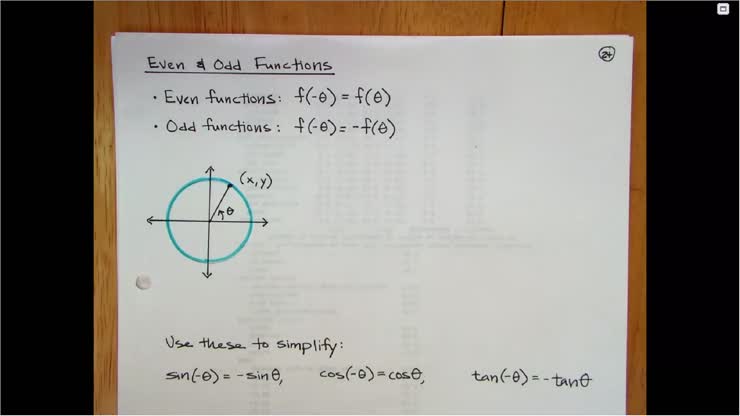 24
Even & Odd Functions
• Even functions: f(-θ) = f(θ)
• Odd functions: f(-θ) = -f(θ)
(x,y)
θ
Use these to simplify:
sin(-θ) = -sinθ, cos(-θ) = cosθ, tan(-θ) = -tanθ